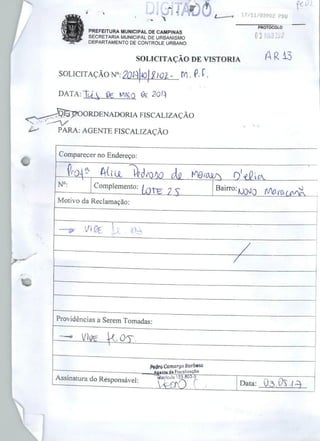 DIGITADO
PREFEITURA MUNICIPAL DE CAMPINAS
SECRETARIA MUNICIPAL DE URBANISMO
DEPARTAMENTO DE CONTROLE URBANO
PROTOCOLO
AR 13
SOLICITAÇÃO DE VISTORIA
SOLICITAÇÃO Nº: M. P. F.
DATA: DE 2017
COORDENADORIA FISCALIZAÇÃO
PARA: AGENTE FISCALIZAÇÃO
Comparecer no Endereço:
Profª Alice Pedroso de Moraes D'elia
Nº: Complemento: LOTE 25 Bairro: NOVO MARACANÃ
Motivo da Reclamação:
VIDE
Providências a Serem Tomadas:
VIDE fl. 05
Pedro Camargo Barbosa
Agente de Fiscalização
Assinatura do Responsável: Data: 03.05.17